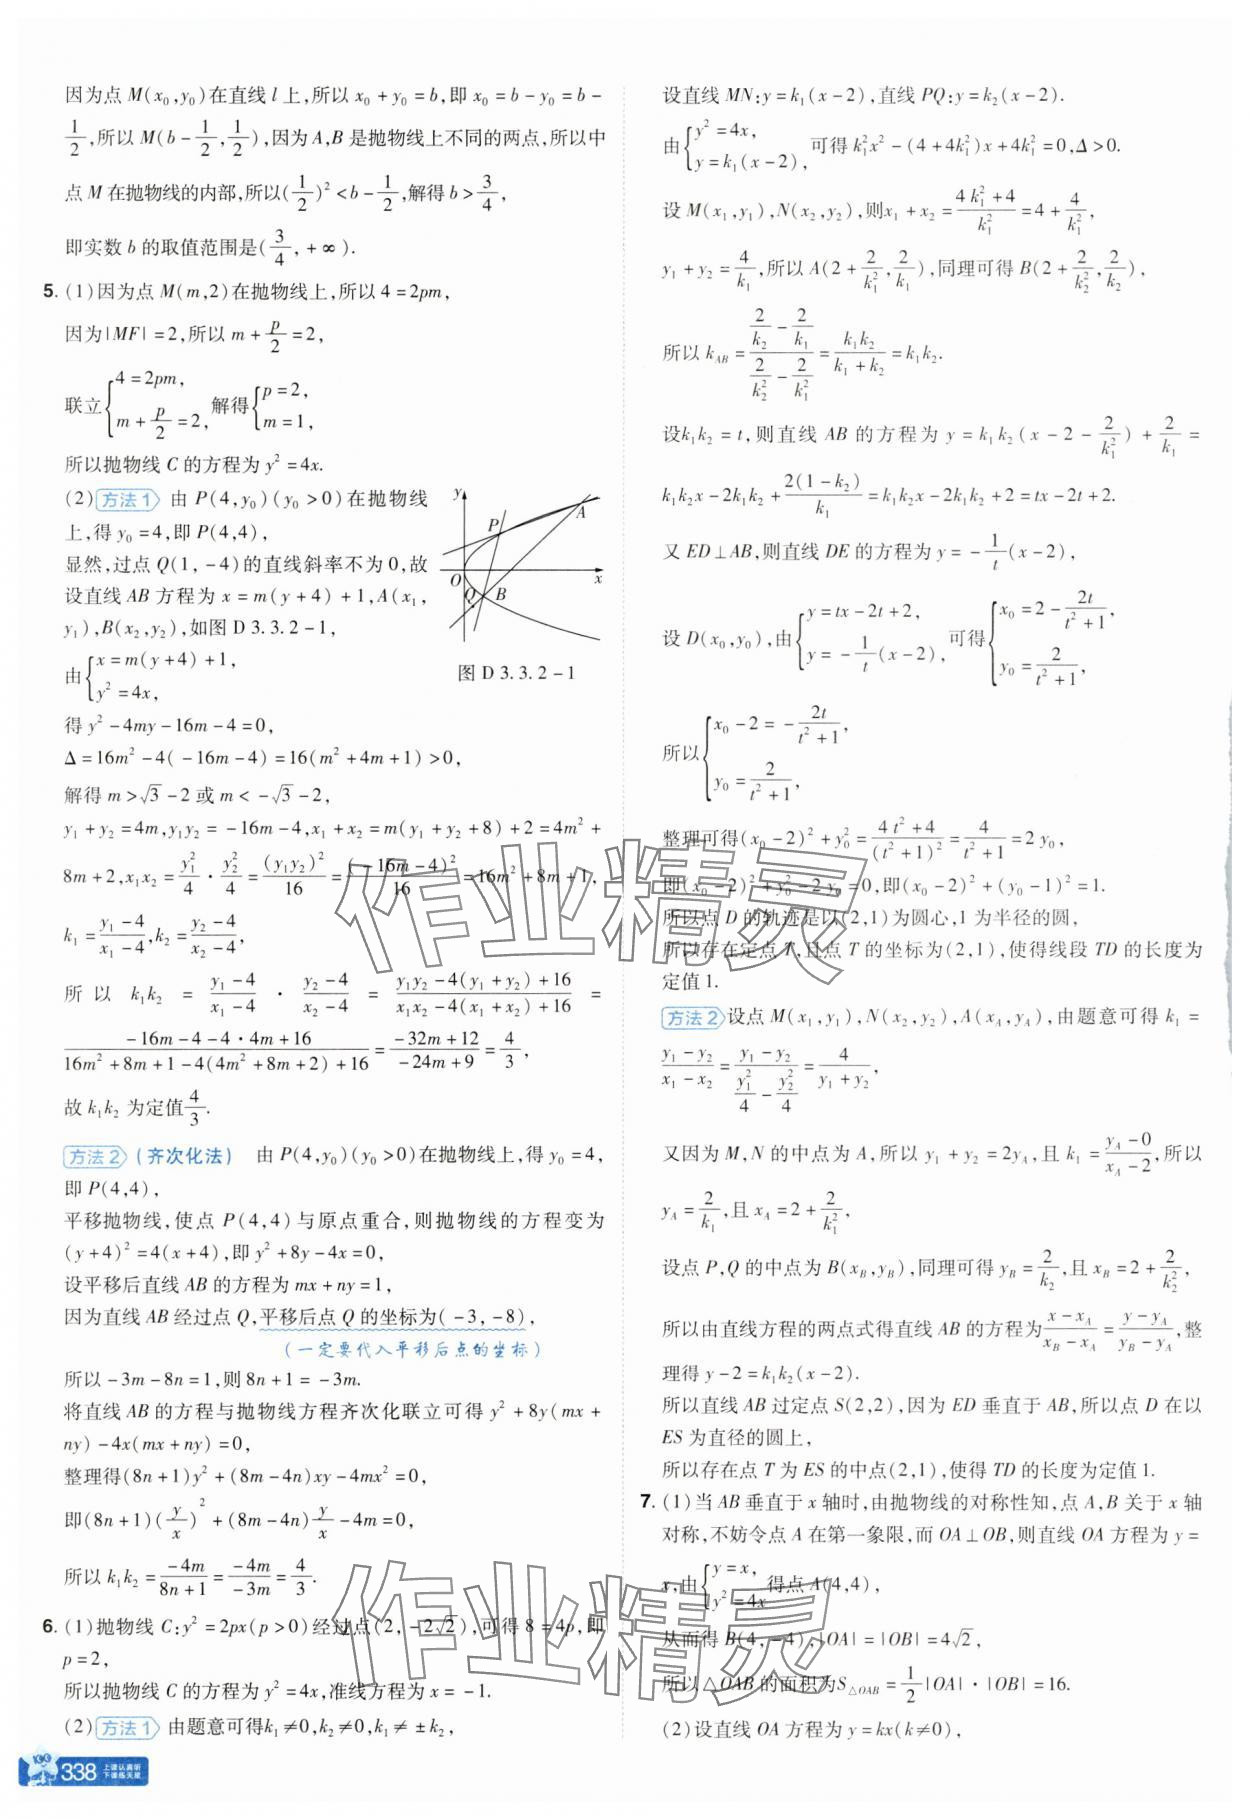 因为点 M(x₀,y₀)在直线 l 上,所以 x₀+y₀=b,即 x₀=b-y₀=b-
1/2,所以 M(b-1/2,1/2),因为 A,B 是抛物线上不同的两点,所以中
点 M 在抛物线的内部,所以(1/2)²<b-1/2,解得 b>3/4,
即实数 b 的取值范围是(3/4,+∞).
5. (1)因为点 M(m,2)在抛物线上,所以 4=2pm,
因为|MF|=2,所以 m+p/2=2,
联立{4=2pm, m+p/2=2, 解得{p=2, m=1,
所以抛物线 C 的方程为 y²=4x.
(2)方法1 由 P(4,y₀)(y₀>0)在抛物线
上,得 y₀=4,即 P(4,4),
显然,过点 Q(1,-4)的直线斜率不为 0,故
设直线 AB 方程为 x=m(y+4)+1,A(x₁,
y₁),B(x₂,y₂),如图 D 3.3.2-1,
y
P
A
O
x
Q
B
图 D 3.3.2-1
由{x=m(y+4)+1, y²=4x,
得 y²-4my-16m-4=0,
Δ=16m²-4(-16m-4)=16(m²+4m+1)>0,
解得 m>√3-2 或 m<-√3-2,
y₁+y₂=4m,y₁y₂=-16m-4,x₁+x₂=m(y₁+y₂+8)+2=4m²+
8m+2,x₁x₂=y₁²/4·y₂²/4=(y₁y₂)²/16=(-16m-4)²/16=16m²+8m+1,
k₁=(y₁-4)/(x₁-4),k₂=(y₂-4)/(x₂-4),
所以 k₁k₂=(y₁-4)/(x₁-4)·(y₂-4)/(x₂-4)=[y₁y₂-4(y₁+y₂)+16]/[x₁x₂-4(x₁+x₂)+16]=
(-16m-4-4·4m+16)/[16m²+8m+1-4(4m²+8m+2)+16]=(-32m+12)/(-24m+9)=4/3,
故 k₁k₂ 为定值4/3.
方法2(齐次化法) 由 P(4,y₀)(y₀>0)在抛物线上,得 y₀=4,
即 P(4,4),
平移抛物线,使点 P(4,4)与原点重合,则抛物线的方程变为
(y+4)²=4(x+4),即 y²+8y-4x=0,
设平移后直线 AB 的方程为 mx+ny=1,
因为直线 AB 经过点 Q,平移后点 Q 的坐标为(-3,-8),
(一定要代入平移后点的坐标)
所以-3m-8n=1,则 8n+1=-3m.
将直线 AB 的方程与抛物线方程齐次化联立可得 y²+8y(mx+
ny)-4x(mx+ny)=0,
整理得(8n+1)y²+(8m-4n)xy-4mx²=0,
即(8n+1)(y/x)²+(8m-4n)y/x-4m=0,
所以 k₁k₂=-4m/(8n+1)=-4m/-3m=4/3.
6. (1)抛物线 C:y²=2px(p>0)经过点(2,-2√2),可得 8=4p,即
p=2,
所以抛物线 C 的方程为 y²=4x,准线方程为 x=-1.
(2)方法1 由题意可得k₁≠0,k₂≠0,k₁≠±k₂,
338 上课认真听
下课练天星
设直线 MN:y=k₁(x-2),直线 PQ:y=k₂(x-2).
由{y²=4x, y=k₁(x-2), 可得 k₁²x²-(4+4k₁²)x+4k₁²=0,Δ>0.
设 M(x₁,y₁),N(x₂,y₂),则x₁+x₂=(4k₁²+4)/k₁²=4+4/k₁²,
y₁+y₂=4/k₁,所以 A(2+2/k₁²,2/k₁),同理可得 B(2+2/k₂²,2/k₂),
所以 k_AB=(2/k₂-2/k₁)/(2/k₂²-2/k₁²)=k₁k₂/(k₁+k₂)=k₁k₂.
设k₁k₂=t,则直线 AB 的方程为 y=k₁k₂(x-2-2/k₁²)+2/k₁=
k₁k₂x-2k₁k₂+2(1-k₂)/k₁=k₁k₂x-2k₁k₂+2=tx-2t+2.
又 ED⊥AB,则直线 DE 的方程为 y=-1/t(x-2),
设 D(x₀,y₀),由{y=tx-2t+2, y=-1/t(x-2), 可得{x₀=2-2t/(t²+1), y₀=2/(t²+1),
所以{x₀-2=-2t/(t²+1), y₀=2/(t²+1),
整理可得(x₀-2)²+y₀²=(4t²+4)/(t²+1)²=4/(t²+1)=2y₀,
即(x₀-2)²+y₀²-2y₀=0,即(x₀-2)²+(y₀-1)²=1.
所以点 D 的轨迹是以(2,1)为圆心,1 为半径的圆,
所以存在定点 T,且点 T 的坐标为(2,1),使得线段 TD 的长度为
定值 1.
方法2 设点 M(x₁,y₁),N(x₂,y₂),A(x_A,y_A),由题意可得 k₁=
(y₁-y₂)/(x₁-x₂)=(y₁-y₂)/(y₁²/4-y₂²/4)=4/(y₁+y₂),
又因为 M,N 的中点为 A,所以 y₁+y₂=2y_A,且 k₁=(y_A-0)/(x_A-2),所以
y_A=2/k₁,且 x_A=2+2/k₁²,
设点 P,Q 的中点为 B(x_B,y_B),同理可得 y_B=2/k₂,且 x_B=2+2/k₂²,
所以由直线方程的两点式得直线 AB 的方程为(x-x_A)/(x_B-x_A)=(y-y_A)/(y_B-y_A),整
理得 y-2=k₁k₂(x-2).
所以直线 AB 过定点 S(2,2),因为 ED 垂直于 AB,所以点 D 在以
ES 为直径的圆上,
所以存在点 T 为 ES 的中点(2,1),使得 TD 的长度为定值 1.
7. (1)当 AB 垂直于 x 轴时,由抛物线的对称性知,点 A,B 关于 x 轴
对称,不妨令点 A 在第一象限,而 OA⊥OB,则直线 OA 方程为 y=
x,由{y=x, y²=4x 得点 A(4,4),
从而得 B(4,-4),|OA|=|OB|=4√2,
所以△OAB 的面积为S△OAB=1/2|OA|·|OB|=16.
(2)设直线 OA 方程为 y=kx(k≠0),
作业精灵
作业精灵